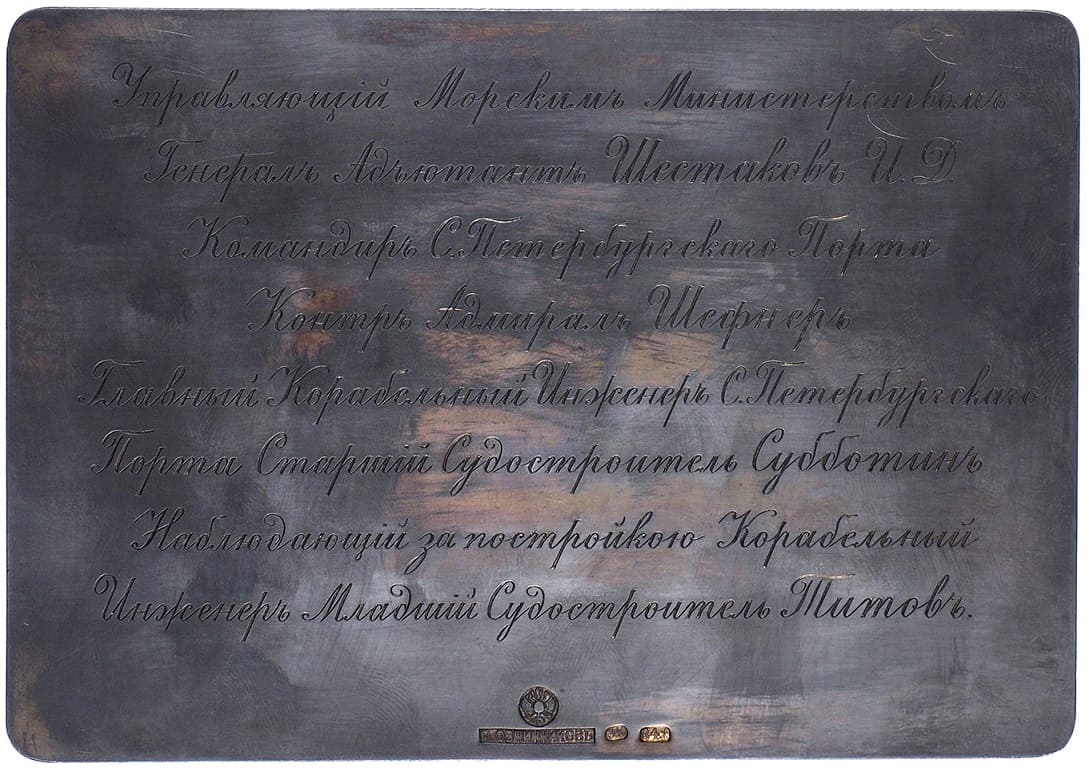 Управляющій Морскимъ Министерствомъ
Генералъ Адъютантъ Шестаковъ И. Д.
Командиръ С.Петербургскаго Порта
Контръ Адмиралъ Шефнеръ
Главный Корабельный Инженеръ С.Петербургскаго
Порта Старшій Судостроитель Субботинъ
Наблюдающій за постройкою Корабельный
Инженеръ Младшій Судостроитель Титовъ.